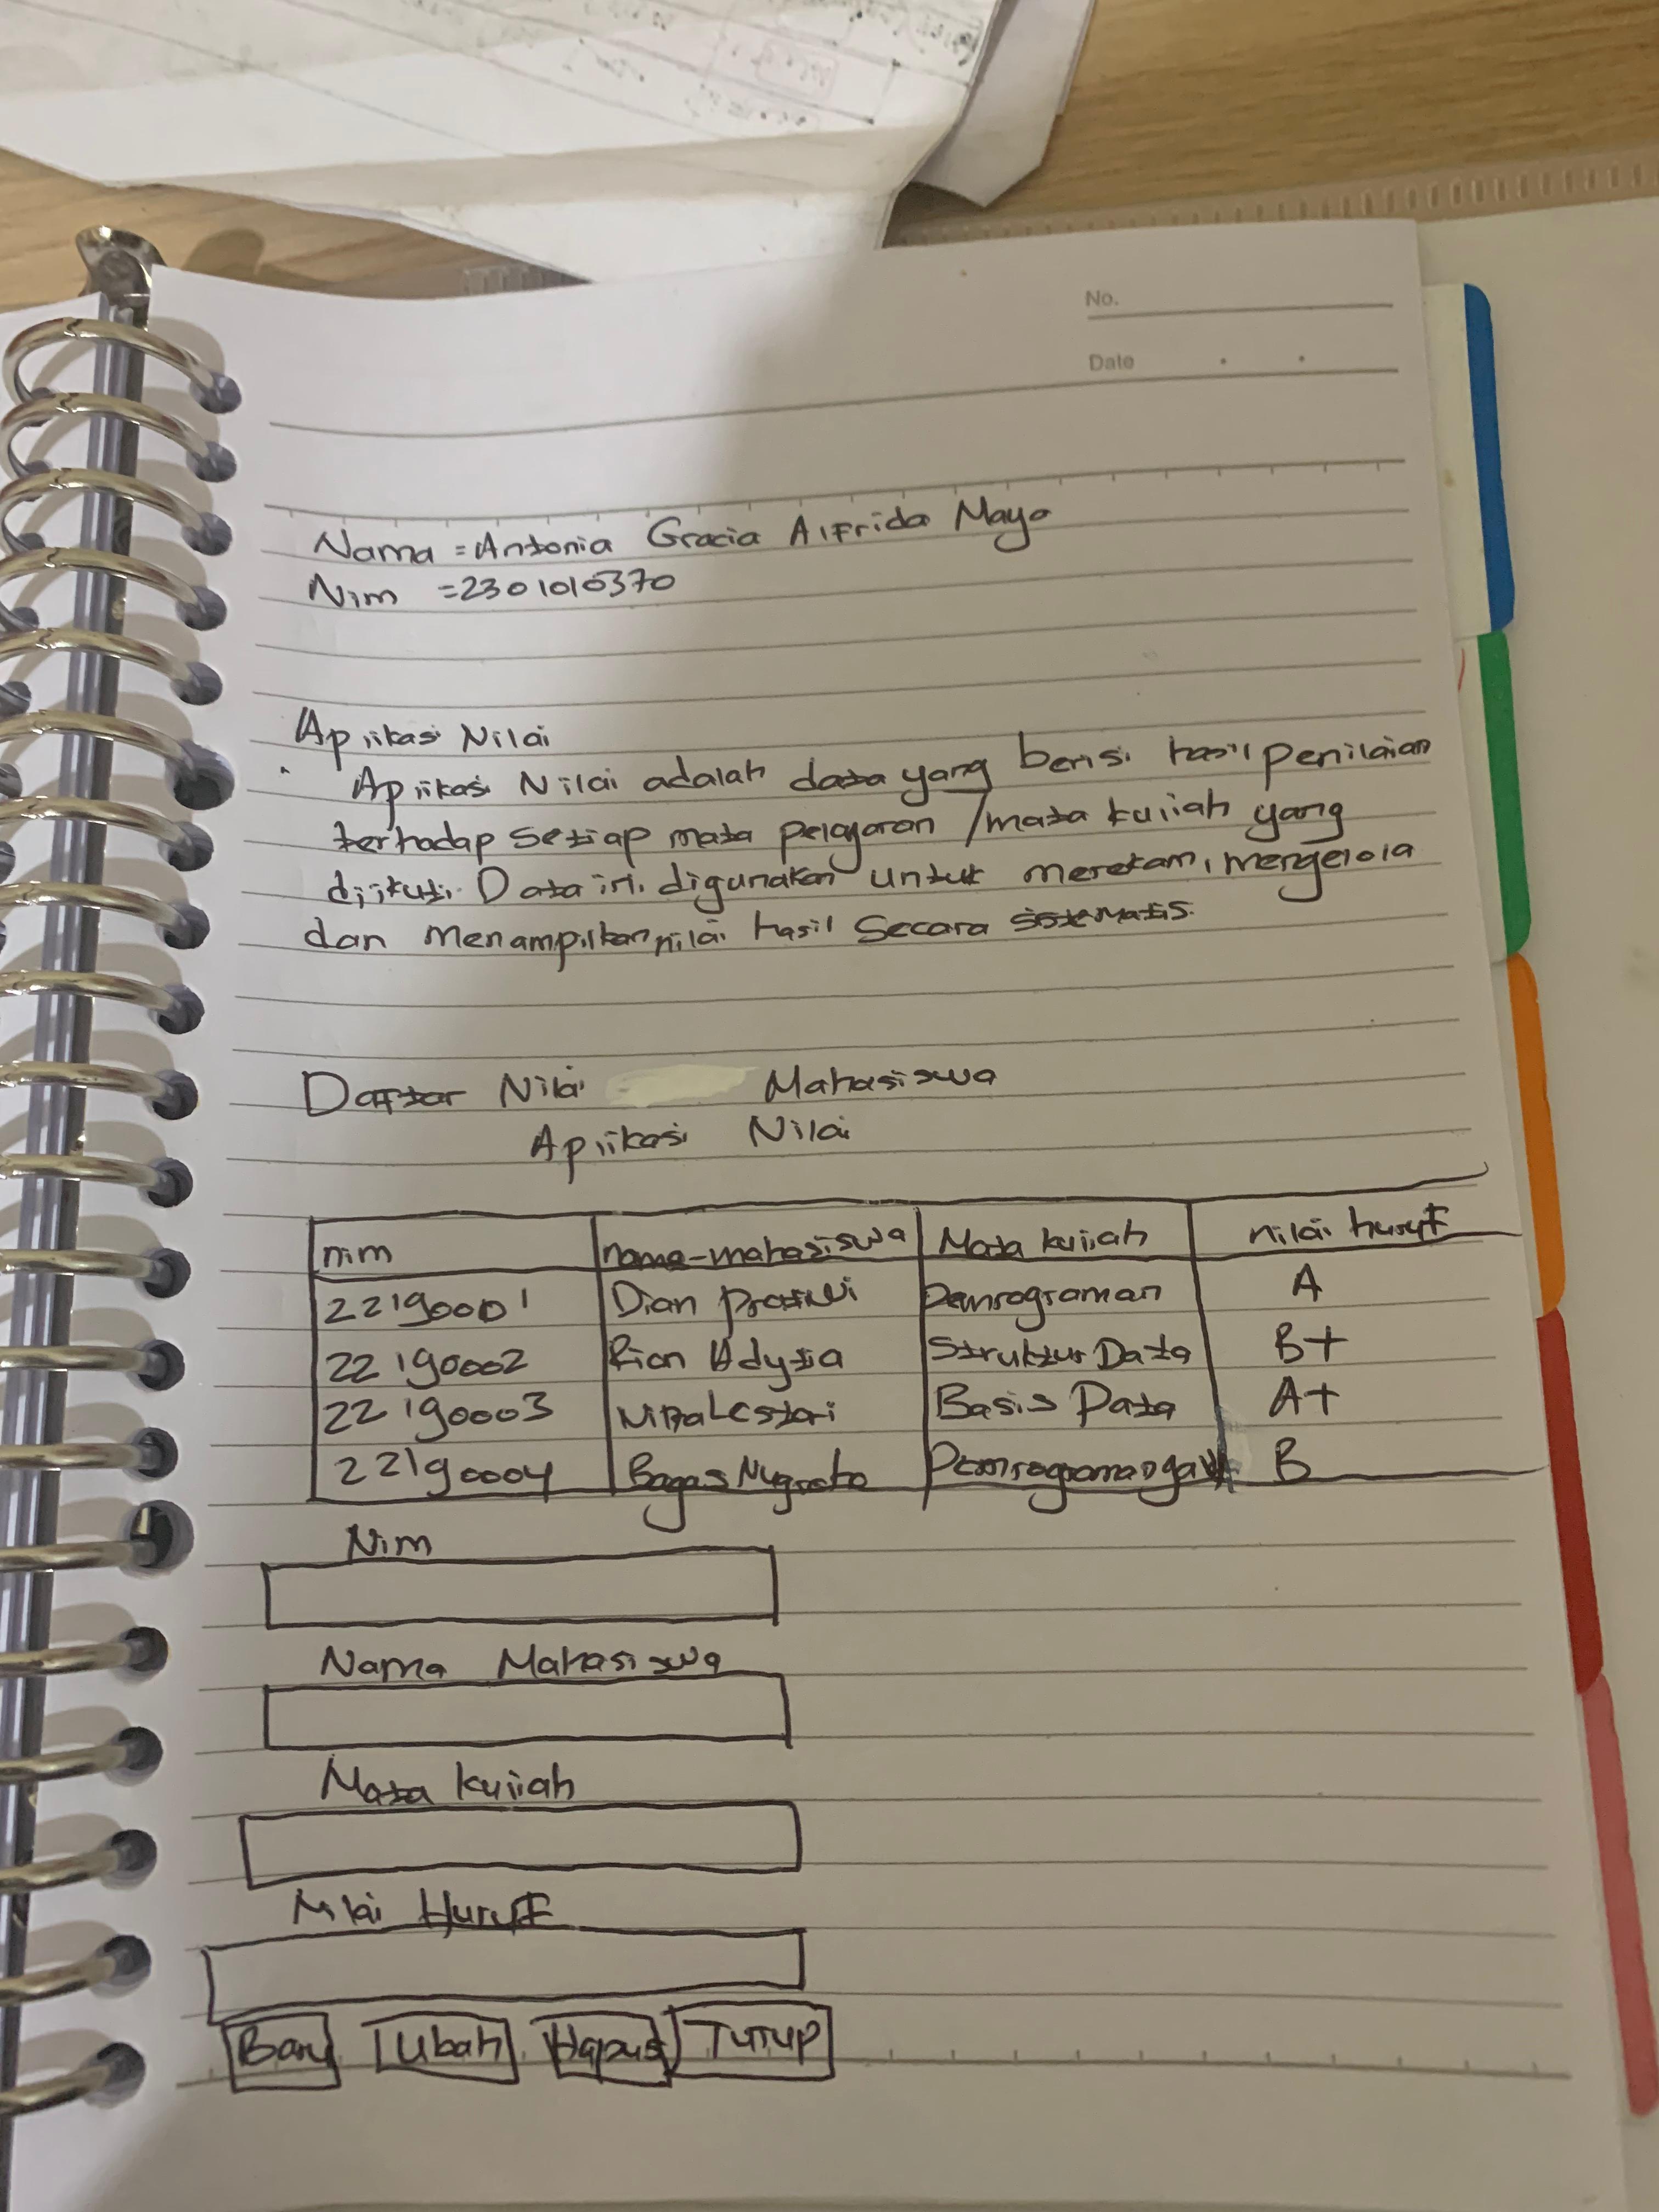 No.
Date
Nama = Antonia Gracia Alfrida Mayo
Nim = 2301010370
Aplikasi Nilai
Aplikasi Nilai adalah data yang berisi hasil penilaian
terhadap setiap mata pelajaran / mata kuliah yang
diikuti. Data ini digunakan untuk merekam, mengelola
dan menampilkan nilai hasil secara sistematis.
Daftar Nilai Mahasiswa
Aplikasi Nilai
nim nama-mahasiswa Mata kuliah nilai huruf
22190001 Dian Pratiwi Pemrograman A
22190002 Rian Adytia Struktur Data B+
22190003 Nina Lestari Basis Data A+
22190004 Bagas Nugroho B
Nim
Nama Mahasiswa
Mata kuliah
Nilai Huruf
Baru Ubah Hapus Tutup